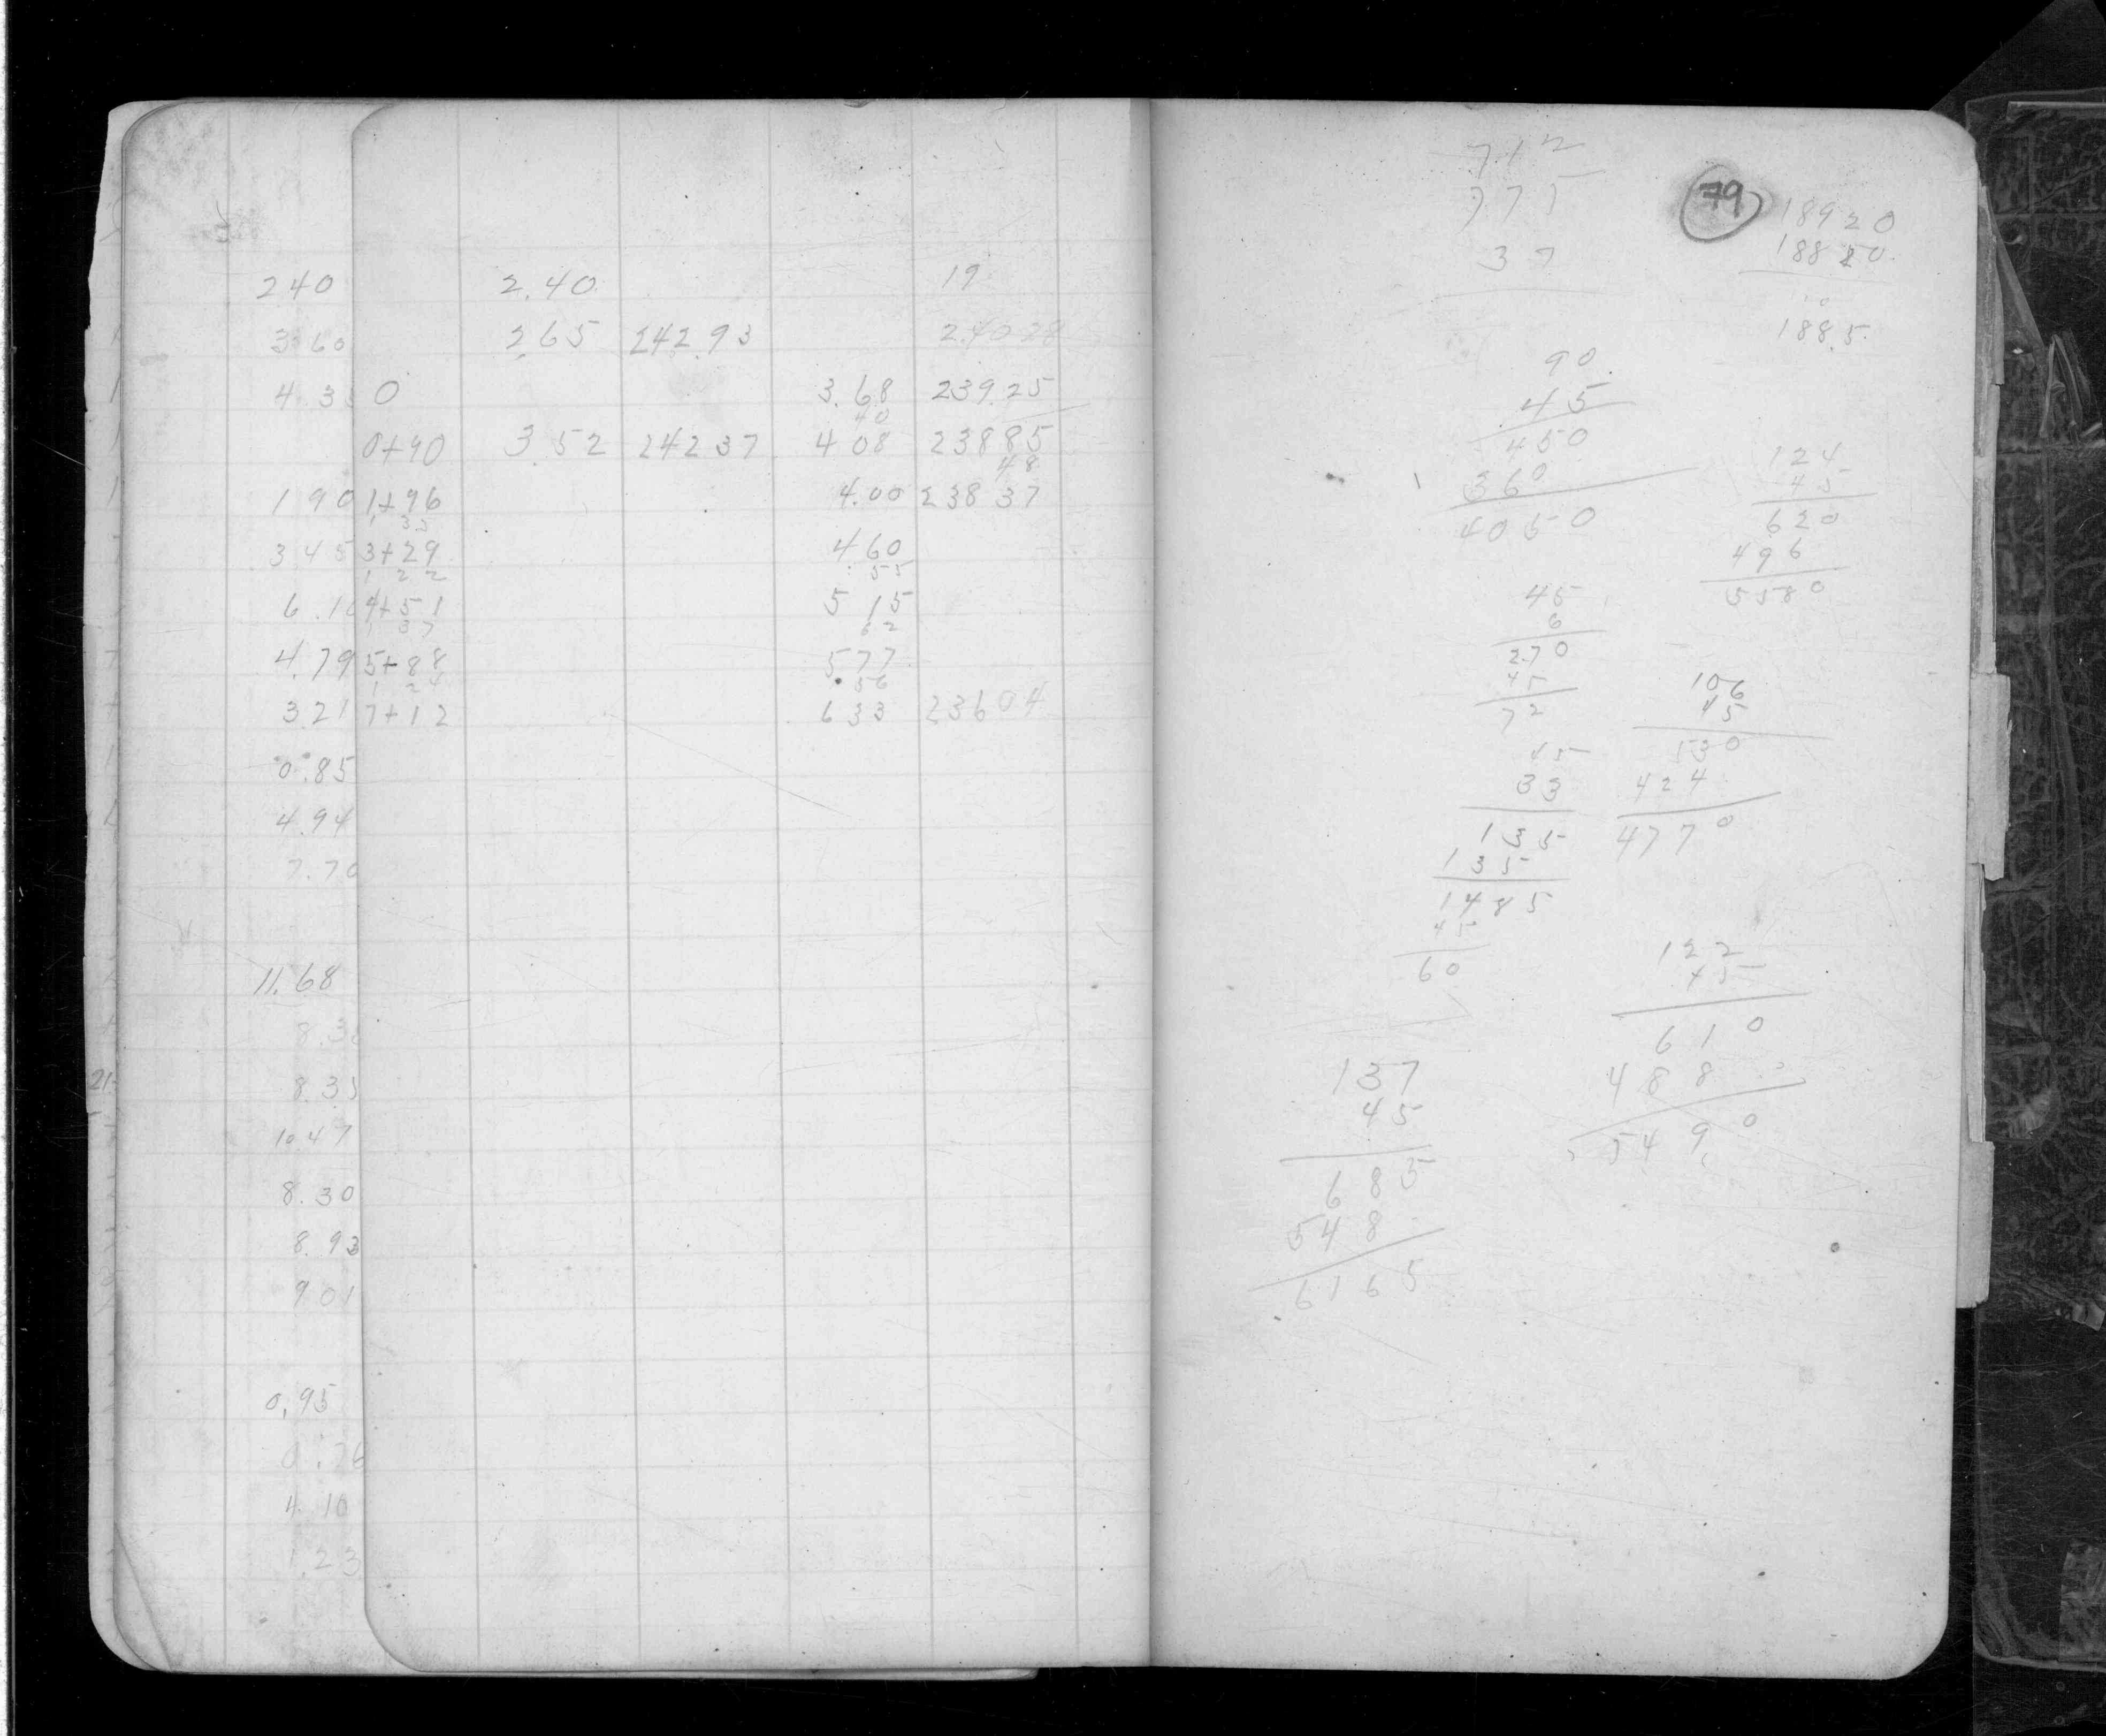 240 2.40 19
3 60 265 242 93 240 28
4.3 0 3.68 239.25
40
0+90 3 52 242 37 4 08 238 85
48
1 90 1+96 4.00 238 37
1 33
3 45 3+29 460
1 22 55
6.1 4+51 5 15
1 37 62
4.79 5+88 577
1 24 56
3.21 7+12 633 236 04
0.85
4.94
7.70
11.68
8.3
21
8.35
10 47
8.30
8.93
9 01
0,95
0.76
4.10
1.23
79
712
775
37
18920
18820
10
188.5
90
45
450
360
4050
124
45
620
496
5580
45
6
270
45
72
106
45
530
424
4770
45
33
135
135
1485
45
60
122
45
610
488
5490
137
45
685
548
6165